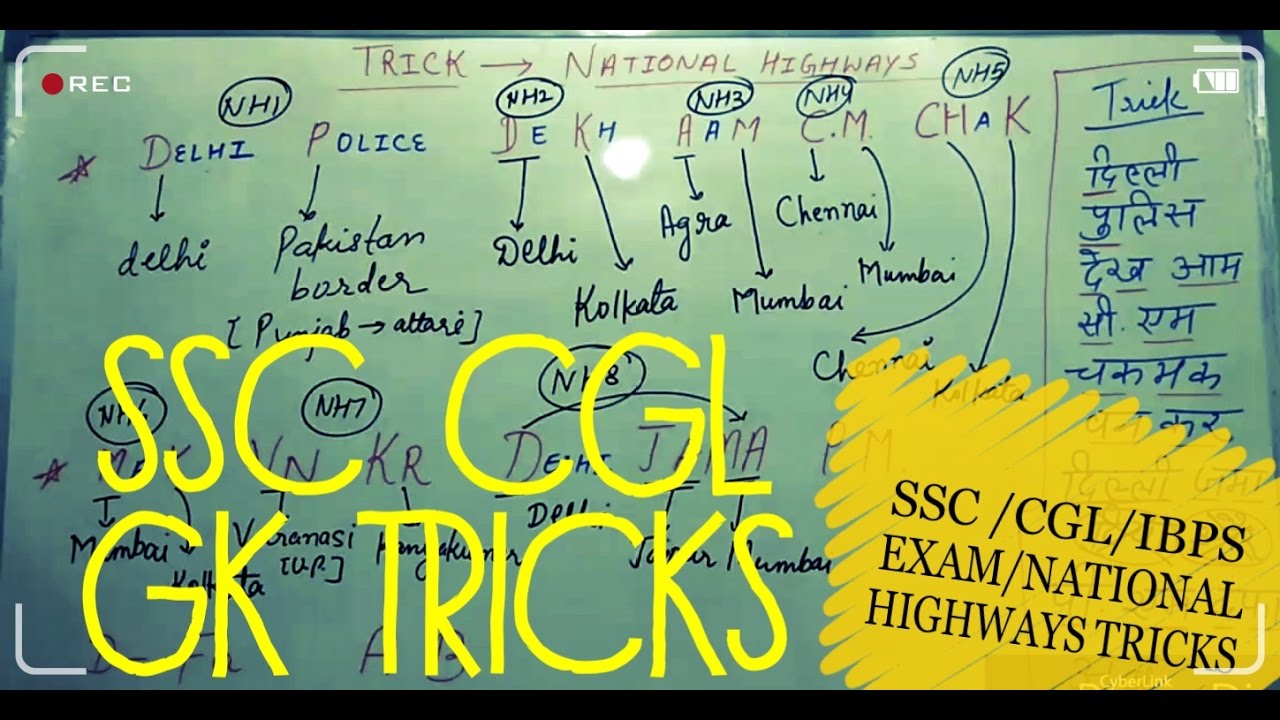 REC
TRICK → NATIONAL HIGHWAYS
NH1 NH2 NH3 NH4 NH5
DELHI POLICE DE KH AAM C.M. CHAK
delhi Pakistan border [Punjab → attari] Delhi Kolkata Agra Mumbai Chennai Mumbai Chennai Kolkata
Trick
दिल्ली
पुलिस
देख आम
सी. एम
चकमक
कर
दिल्ली जमा
NH7 NH8
VN KR DELHI JAMA P.M.
Mumbai Kolkata Varanasi [U.P.] Kanyakumar Delhi Mumbai
SSC CGL
GK TRICKS
SSC /CGL/IBPS
EXAM/NATIONAL
HIGHWAYS TRICKS
CyberLink